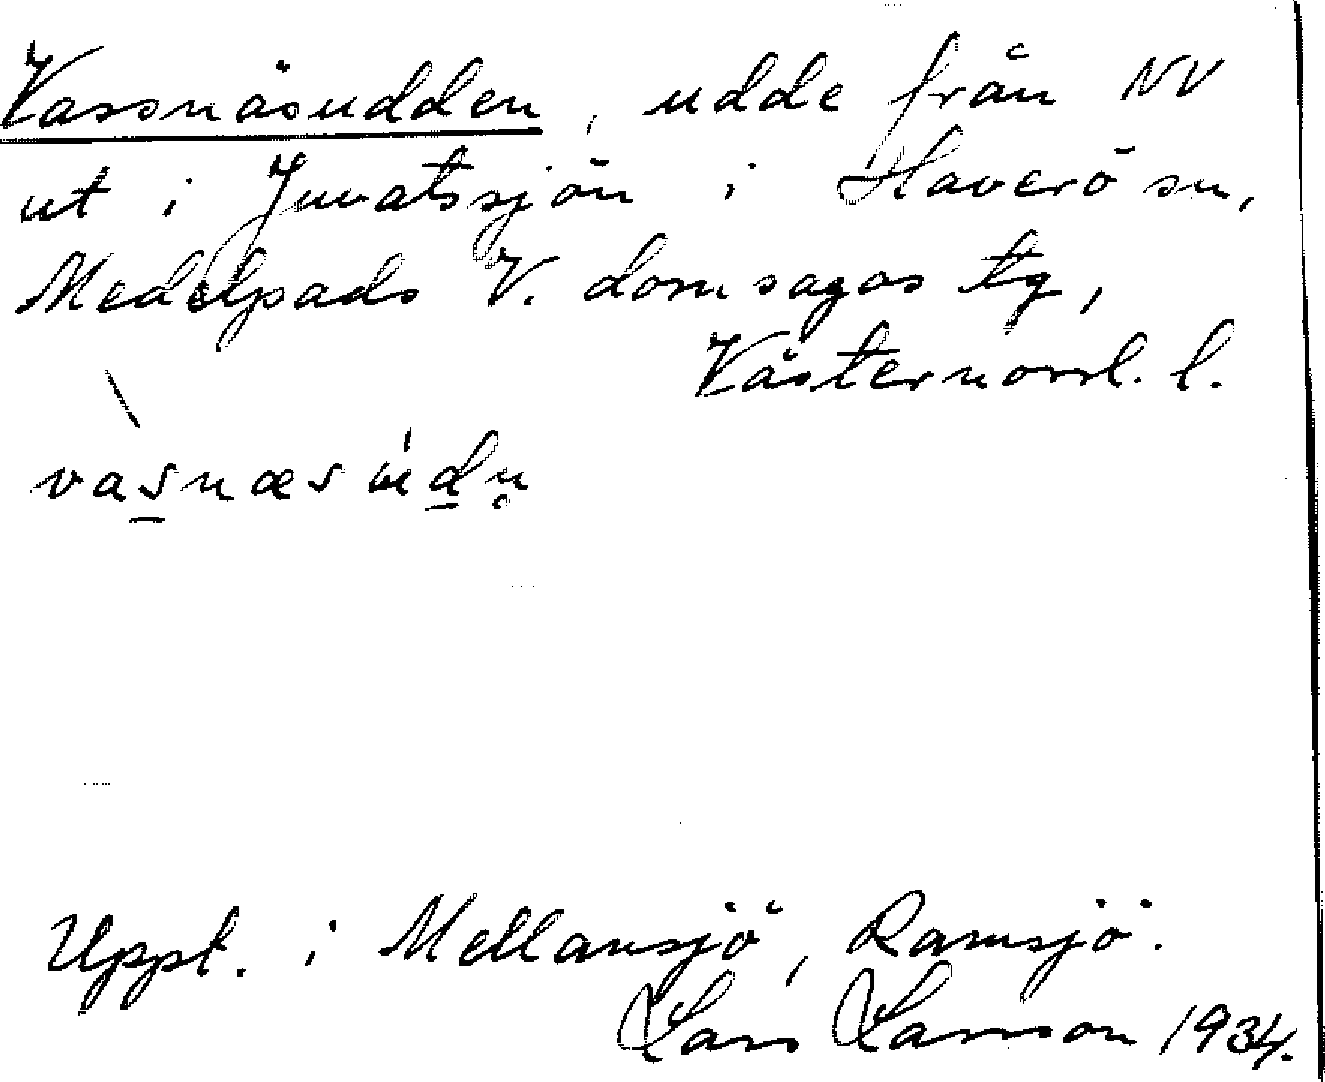 Vassnäsudden, udde från NV
ut i Juvatssjön i Haverö sn,
Medelpads V. domsagas tg,
Västernorrl. l.
vas̲næsùd̲n̥
Uppt. i Mellansjö, Ramsjö.
Lars Larsson 1934.